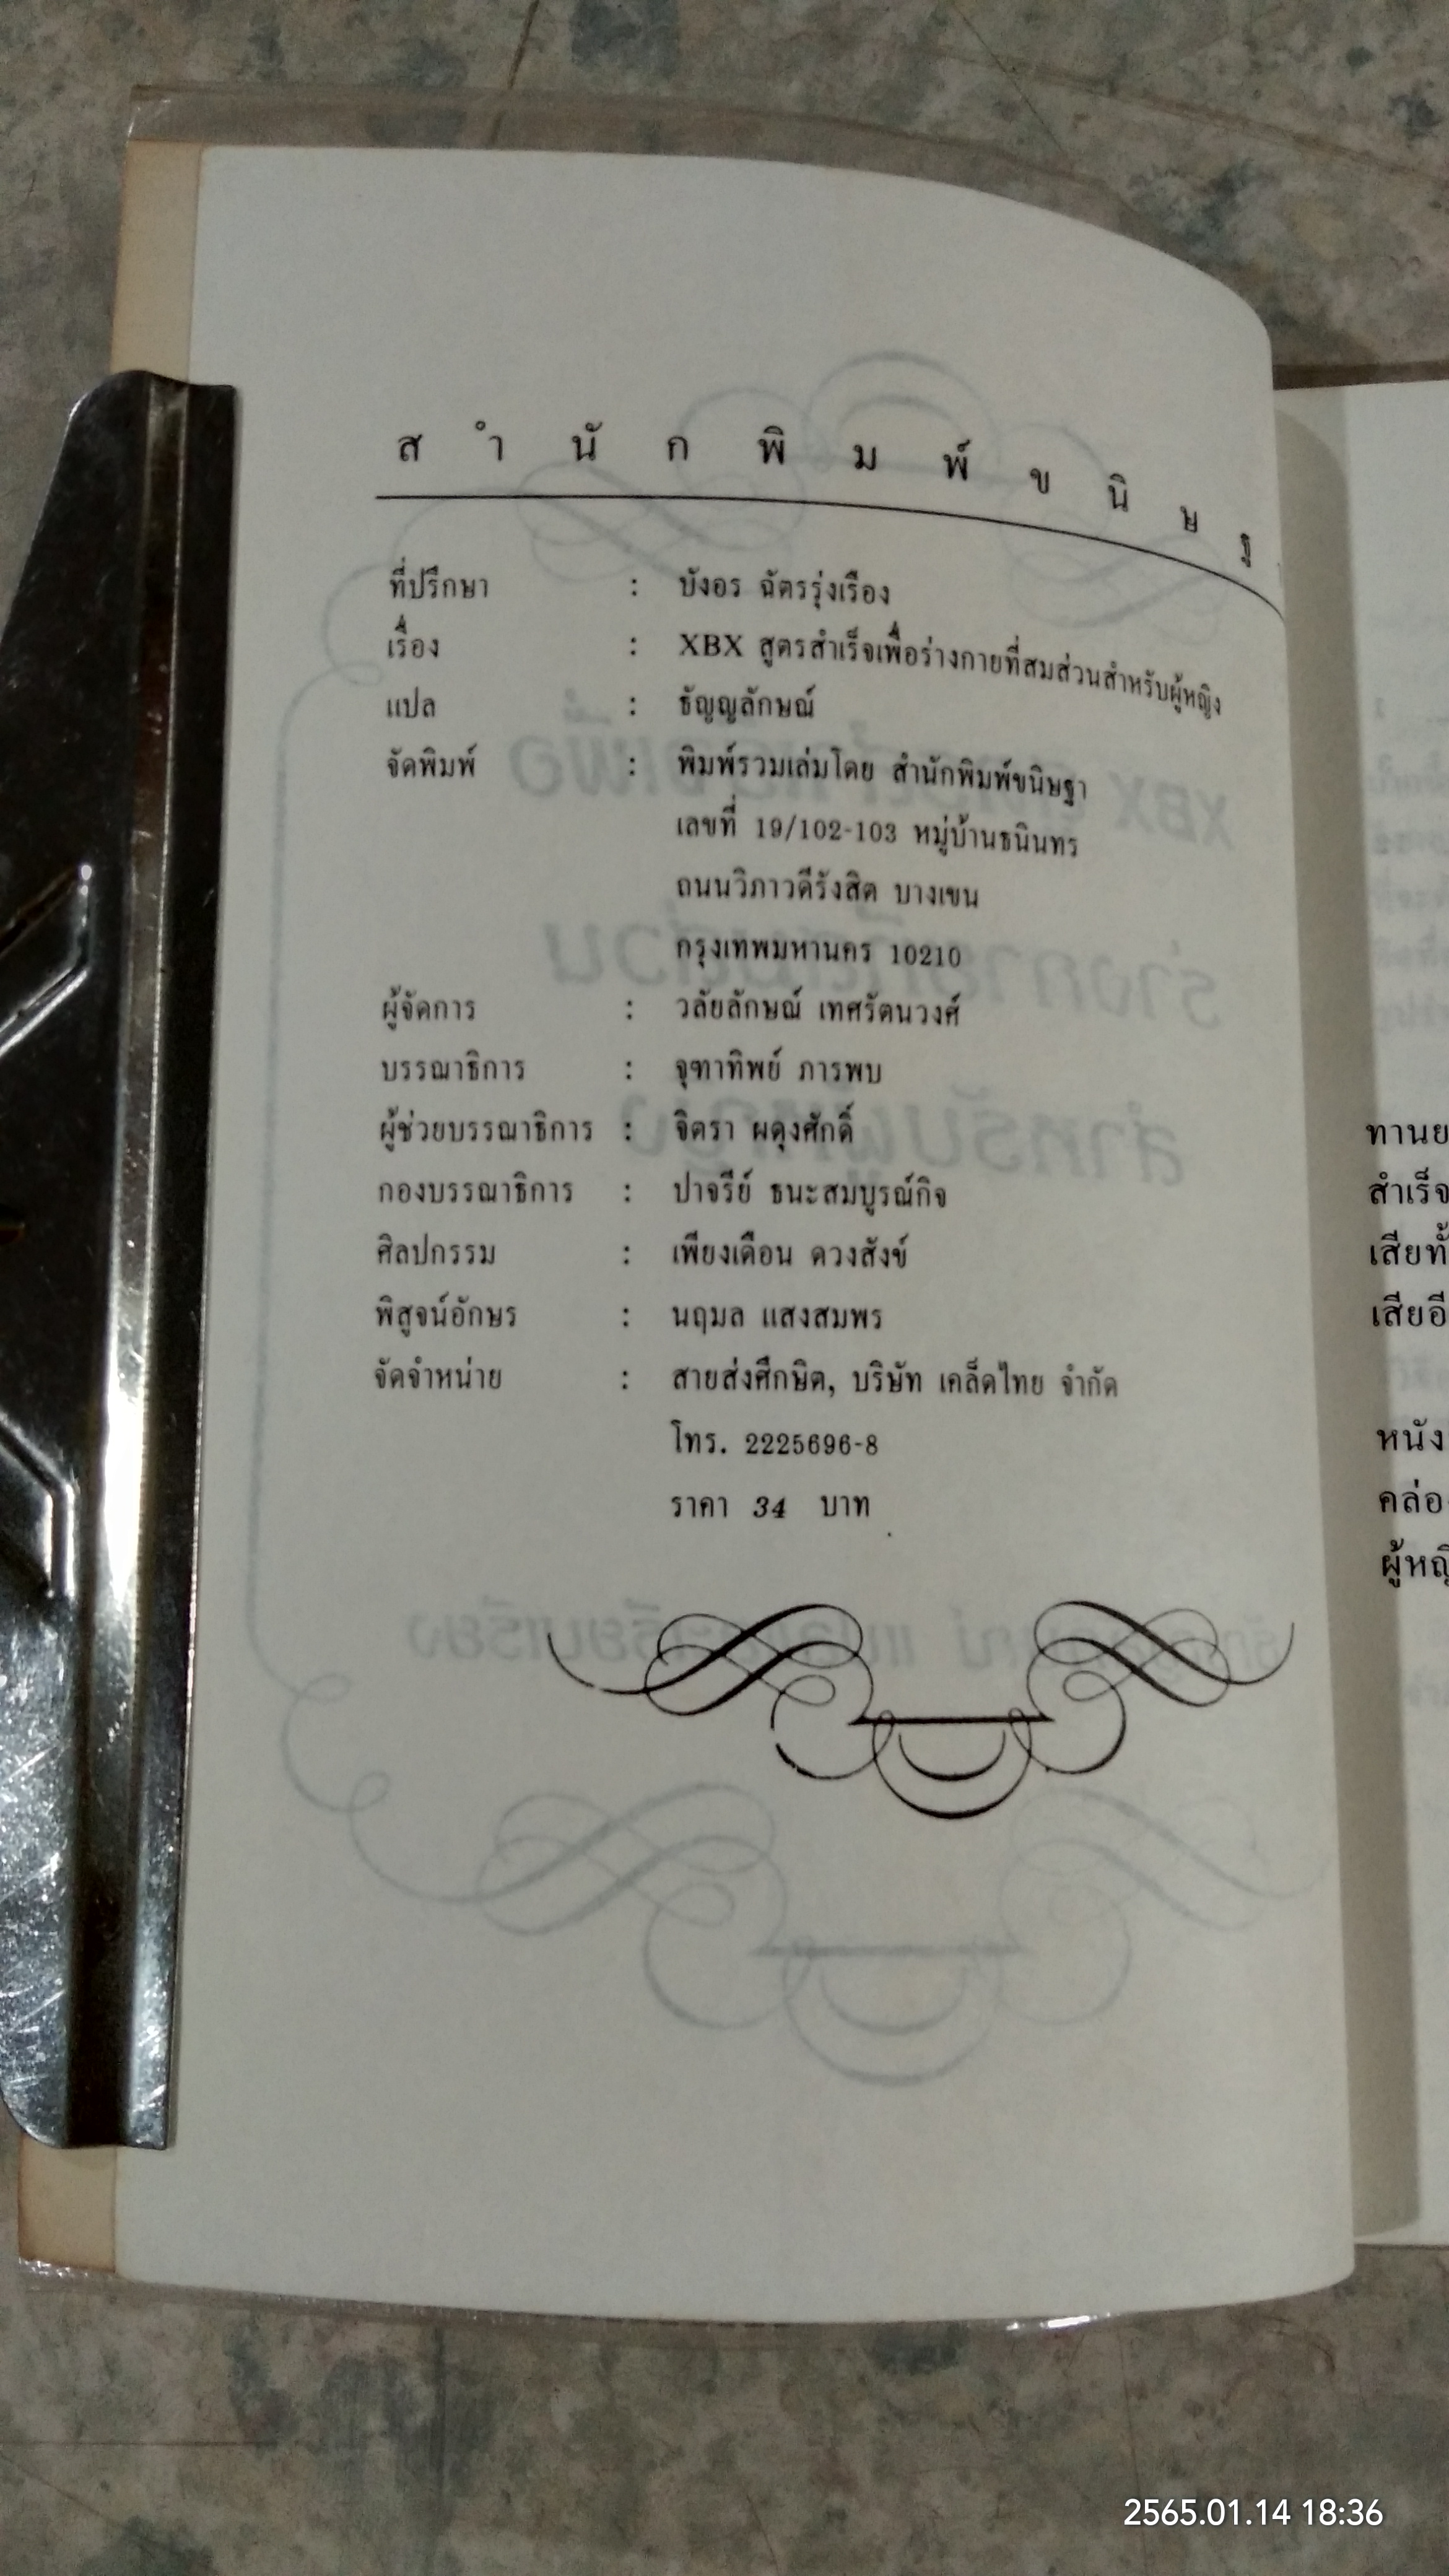 สำนักพิมพ์ขนิษฐ
ที่ปรึกษา : บังอร ฉัตรรุ่งเรือง
เรื่อง : XBX สูตรสำเร็จเพื่อร่างกายที่สมส่วนสำหรับผู้หญิง
แปล : ธัญญลักษณ์
จัดพิมพ์ : พิมพ์รวมเล่มโดย สำนักพิมพ์ขนิษฐา
เลขที่ 19/102-103 หมู่บ้านธนินทร
ถนนวิภาวดีรังสิต บางเขน
กรุงเทพมหานคร 10210
ผู้จัดการ : วลัยลักษณ์ เทศรัตนวงศ์
บรรณาธิการ : จุฑาทิพย์ ภารพบ
ผู้ช่วยบรรณาธิการ : จิตรา ผดุงศักดิ์
กองบรรณาธิการ : ปาจรีย์ ธนะสมบูรณ์กิจ
ศิลปกรรม : เพียงเดือน ดวงสังข์
พิสูจน์อักษร : นฤมล แสงสมพร
จัดจำหน่าย : สายส่งศึกษิต, บริษัท เคล็ดไทย จำกัด
โทร. 2225696-8
ราคา 34 บาท
ทานย
สำเร็จ
เสียทั้
เสียอี
หนัง
คล่อ
ผู้หญิ
2565.01.14 18:36